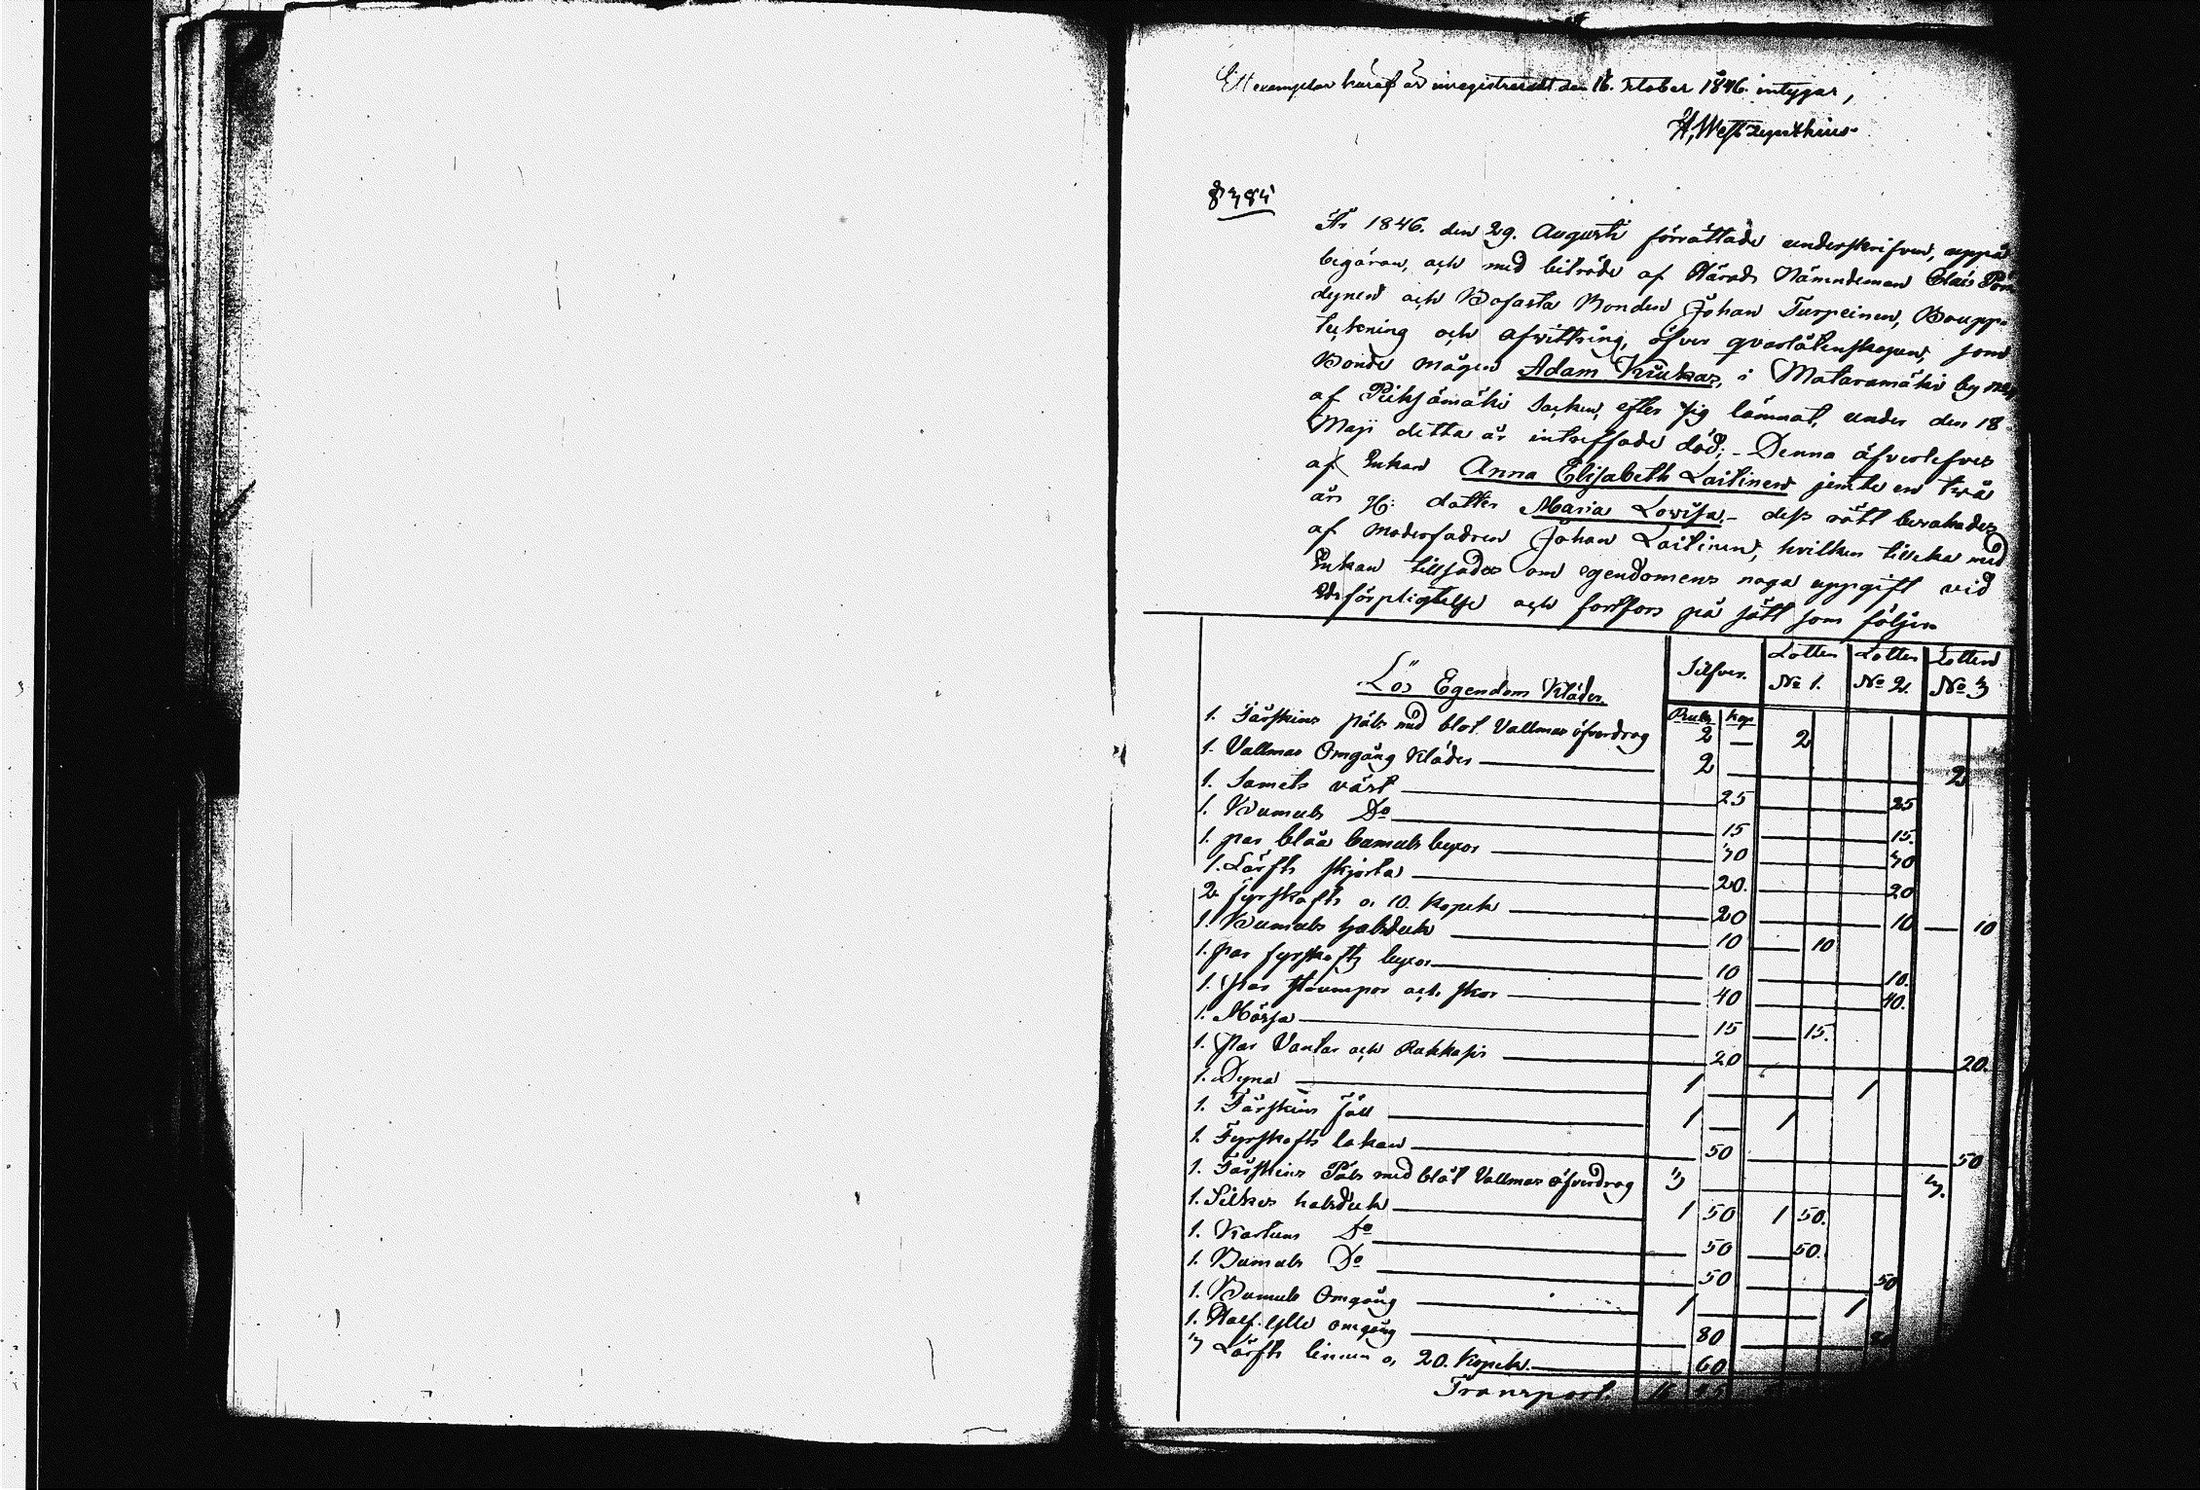 Ett exemplar häraf är inregistreradt den 16. October 1846. intygar,
H, Westzynthius
§ 384
År 1846. den 29. Augusti förrättade underskrifven, uppå
begäran, och med biträde af Härads Nämndeman Elais
och Bofasta Bonden Johan Turpeinen, Boupp-
teckning och afwittring, öfver qvarlåtenskapen, som
Bonde mågen Adam Kiukas, i Mataramäki by
af Pieksämäki Socken, efter sig lämnat, under den 18
Maji detta år inträffade död; - Denna öfverlefves
af Enkan Anna Elisabeth Laitinen jemte en två
års dotter Maria Lovisa - dess rätt bevakades
af moderfadren Johan Laitinen, hvilken tillika med
Enkan tillsades om egendomens noga uppgift vid
Edsförpligtelse och fortfors på sätt som följer
Lös Egendom Kläder. Silfver. Lotten No 1. Lotten No 2. Lotten No 3
Rub. Kop
1. Fårskins päls med blot Vallmar öfverdrag 2 — 2
1. Vallmar Omgång Kläder 2 2
1. Samets väst 25 25
1. Bumuls Do 15 15.
1. par blåa bamuls byxor 30 30
1. Lärfts skjorta 20. 20
2 fyrskafts a 10. Kopek 20 10 10
1. Bumuls halsduk 10 10
1. par fyrskafts byxor 10 10.
1. par strumpor och skor 40 40.
1. Mössa 15 15.
1. par Vantar och Rukkasir 20 20.
1. Dyna 1 1
1. Fårskins fäll 1 1
1. Fyrskafts lakan 50 50
1. Fårskins Päls med blåt Vallmar öfverdrag 3 3.
1. Silkes halsduk 1 50 1 50.
1. Kartuns Do 50 50.
1. Bumuls Do 50 50
1. Bumuls Omgång 1 1
1. Half ylle omgång 80
3 Lärfts linnen a 20. Kopek. 60
Transport.